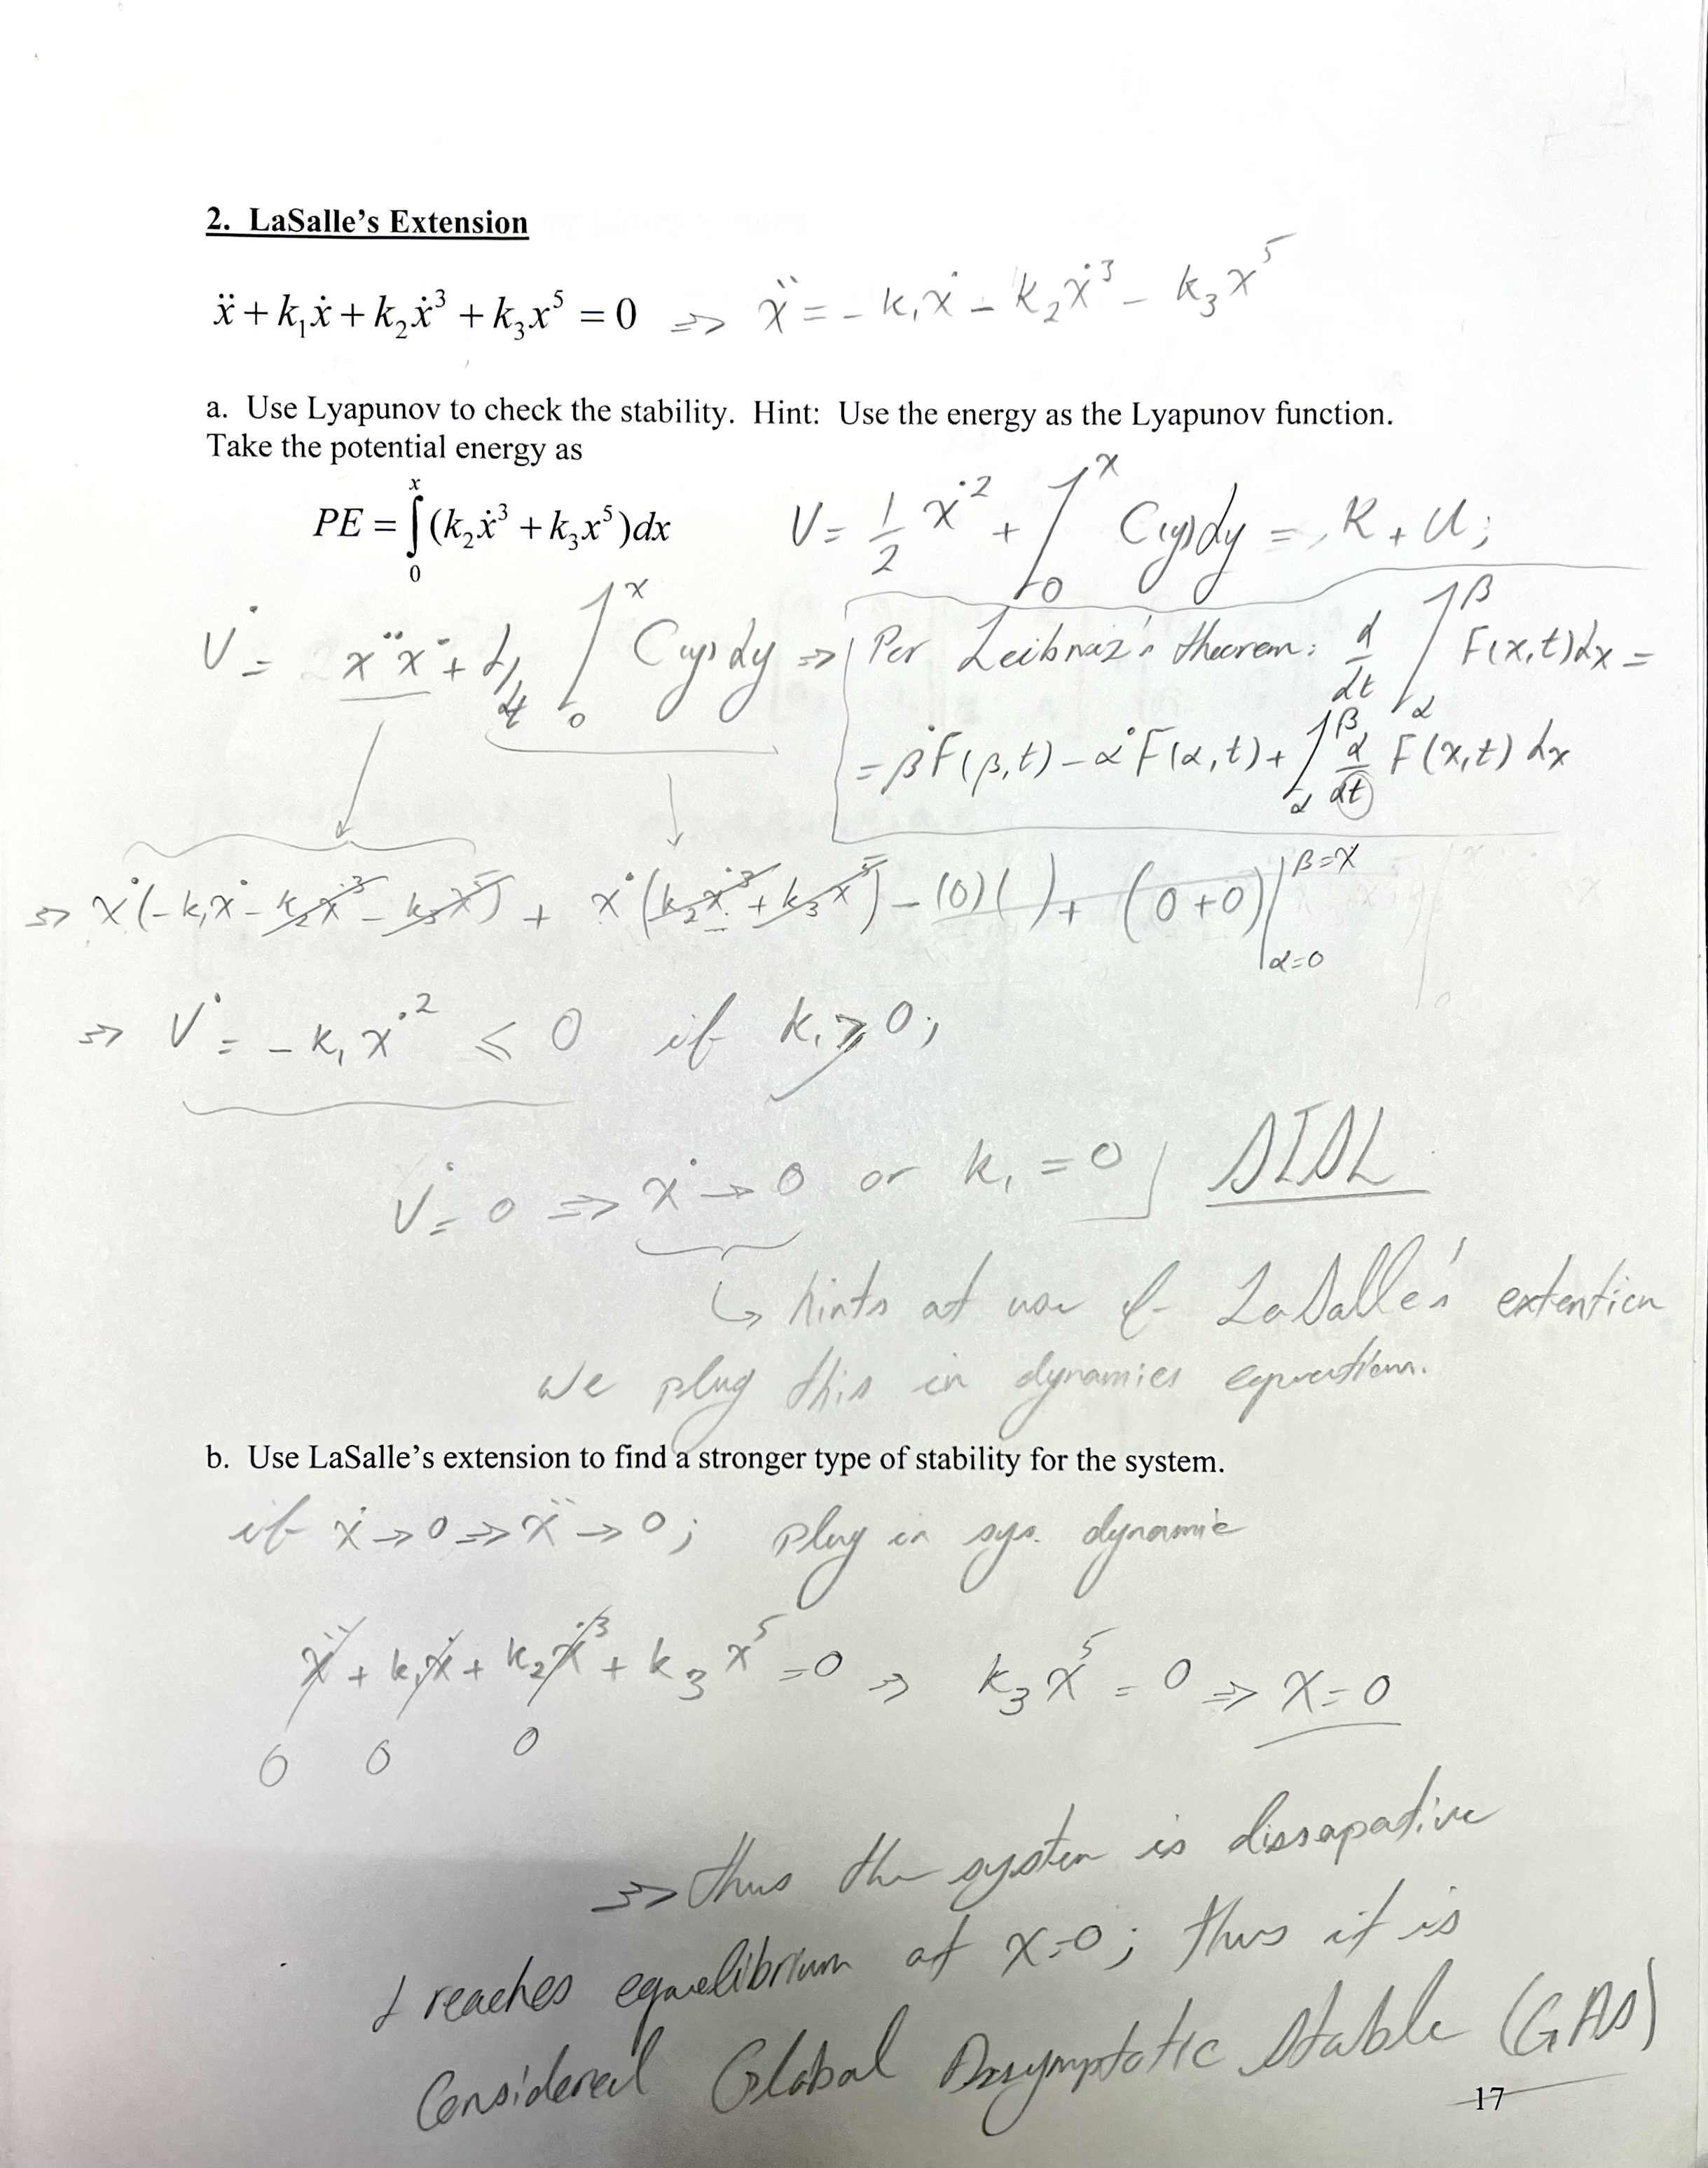 2. LaSalle's Extension
ẍ + k₁ẋ + k₂ẋ³ + k₃x⁵ = 0 ⇒ ẍ = - k₁ẋ - k₂ẋ³ - k₃x⁵
a. Use Lyapunov to check the stability. Hint: Use the energy as the Lyapunov function.
Take the potential energy as
PE = ∫₀ˣ (k₂ẋ³ + k₃x⁵)dx V = 1/2 ẋ² + ∫₀ˣ C(y)dy = K + U;
V̇ = ẍẋ + d/dt ∫₀ˣ C(y)dy ⇒ Per Leibnaz's theorem: d/dt ∫_α^β F(x,t)dx =
= β̇F(β,t) - α̇F(α,t) + ∫_α^β d/dt F(x,t) dx
⇒ ẋ(-k₁ẋ - k₂ẋ³ - k₃x⁵) + ẋ(k₂ẋ³ + k₃x⁵) - (0)( ) + (0+0)|β=x α=0
⇒ V̇ = - k₁ẋ² ≤ 0 if k₁ ≥ 0;
V̇ = 0 ⇒ ẋ → 0 or k₁ = 0 SISL
↳ hints at use of LaSalle's extention
we plug this in dynamics equation.
b. Use LaSalle's extension to find a stronger type of stability for the system.
if ẋ → 0 ⇒ ẍ → 0; plug in sys. dynamic
ẍ + k₁ẋ + k₂ẋ³ + k₃x⁵ = 0 ⇒ k₃x⁵ = 0 ⇒ x = 0
0 0 0
⇒ thus the system is dissapative
& reaches equelibrium at x=0; thus it is
Considered Global Assymptotic Stable (GAS)
17